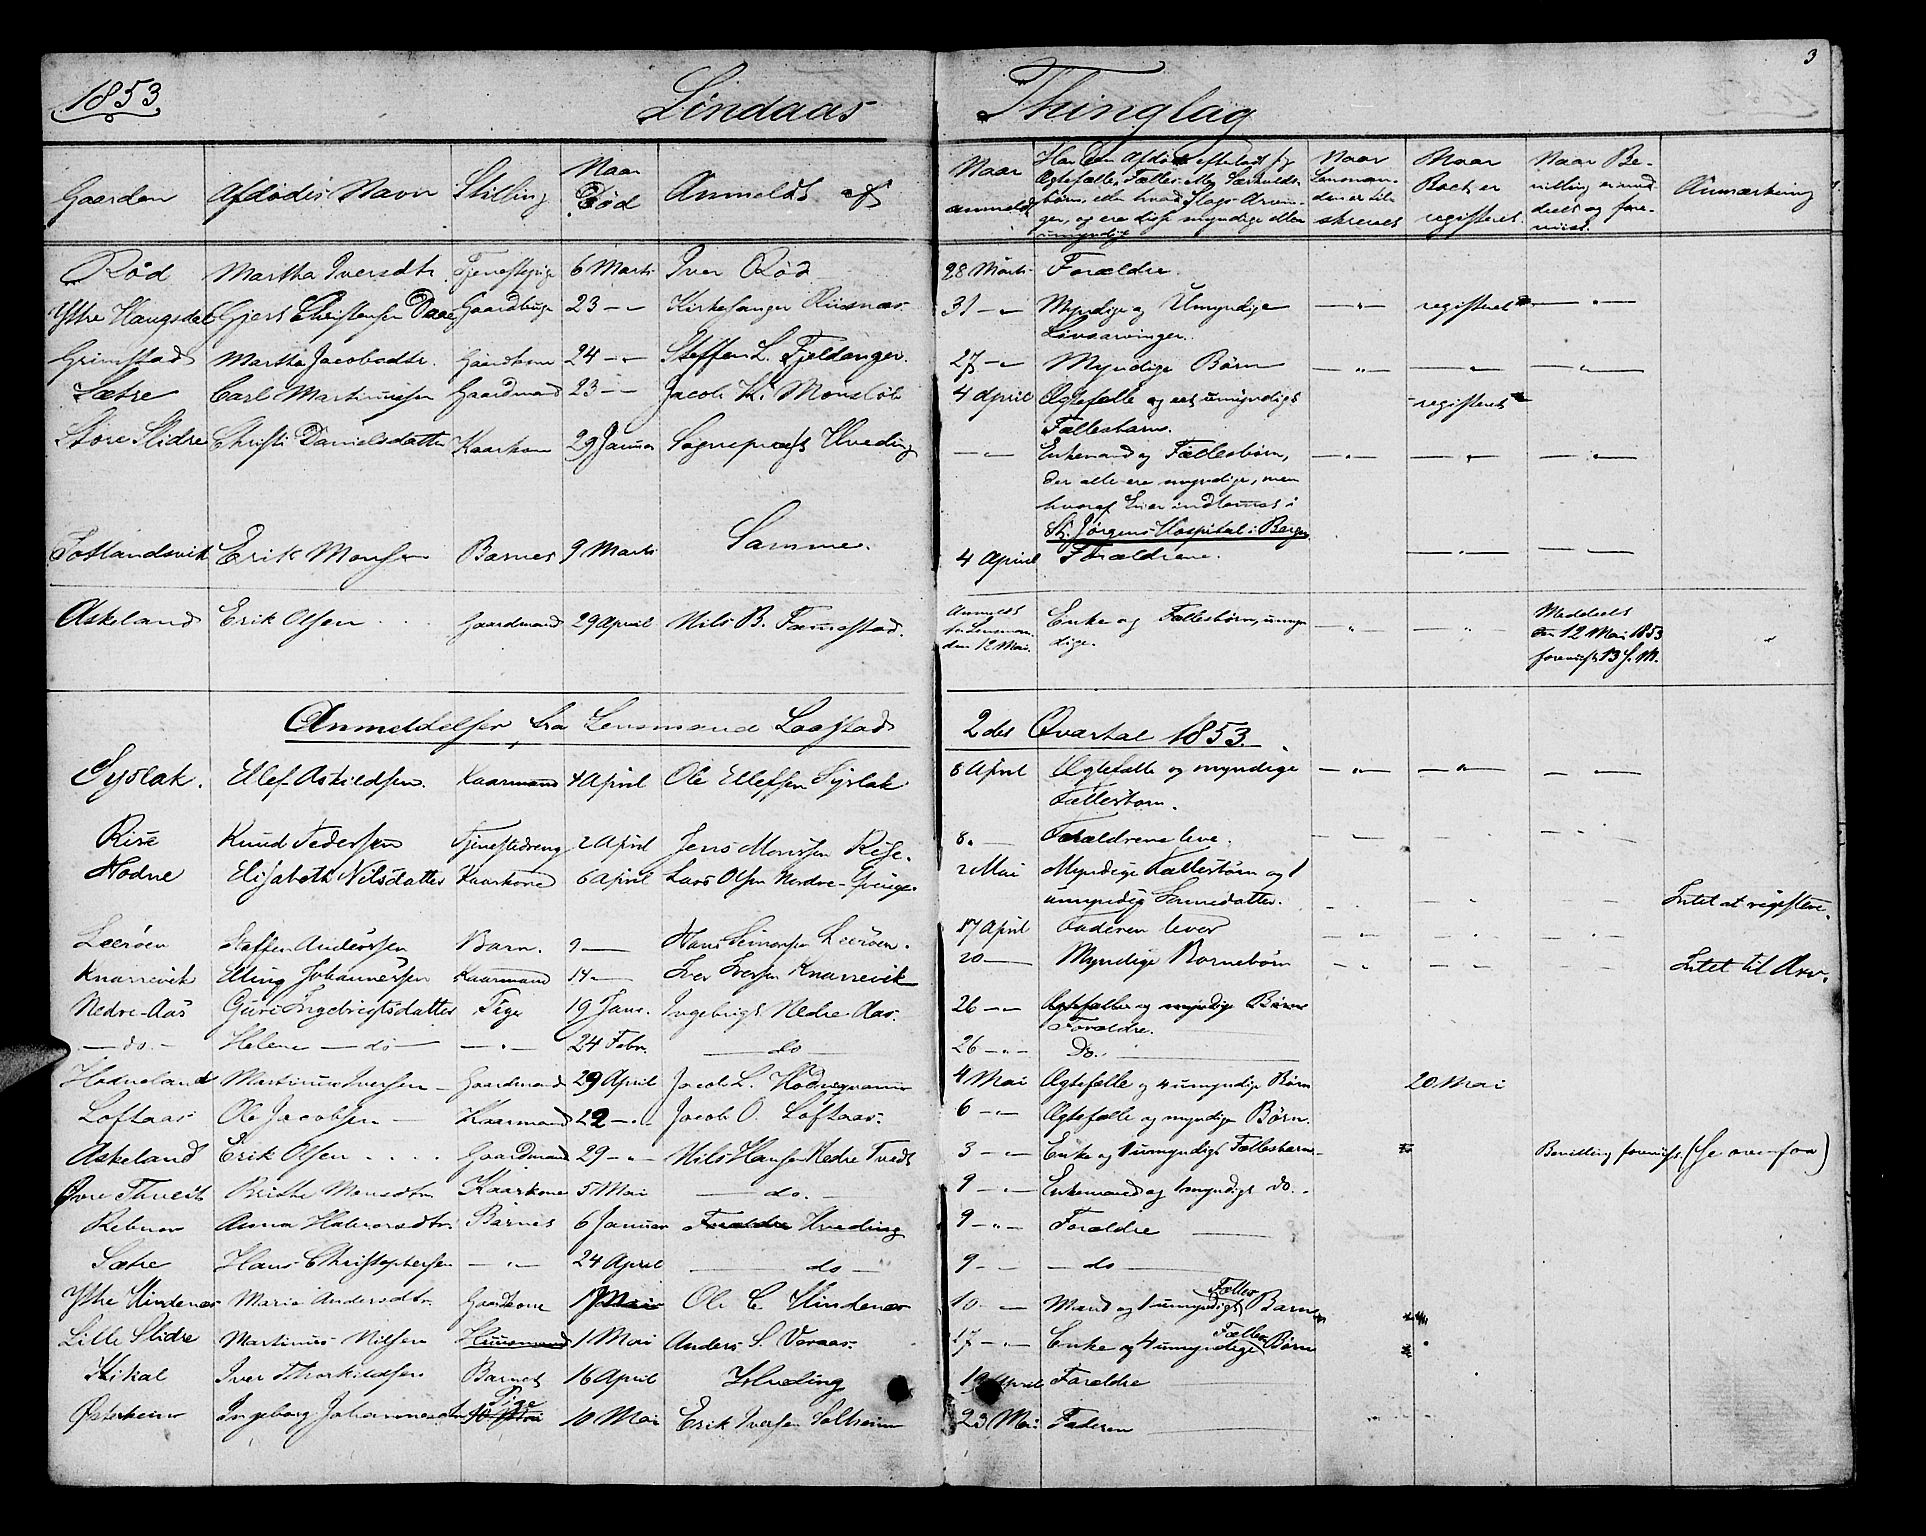 3
1853 Lindaas Thinglag
Gaarden Afdødes Navn Stilling Naar Død Anmeldt af Naar anmeldt Har den Afdøde efterladt sig Ægtefælle, Fælles- eller Særkulds- børn, eller hvad Slags Arvin- ger, og ere disse myndige eller umyndige Naar Lensman- den er til- skrevet Naar Boet er registeret Naar Be- villing er med- deelt og fore- viist. Anmærkning
Rød Martha Iversdtr. Tjenestepige 6 Marts Iver Rød 28 Marts Forældre.
Ystre Haugsdal Gjert Christensen Daae Gaardbruger 23 — " Kirkesanger Riisnæs 31 — " Myndige og Umyndige — " — registeret — " —
Livsarvinger.
Grimstad Martha Jacobsdtr. Gaardkone 24 — " — Steffen L. Fjeldanger. 27 — " Myndige Børn — " — — " — — " —
Sætre Carl Martinussen Gaardmand 23 — " Jacob K. Monslob 4 April Ægtefælle og eet umyndigt registeret
Fællesbarn.
Store Slidre Christi Danielsdatter Kaarkone 29 Januar Sognepræst Hveding — " — Enkemand og Fællesbørn, — " — — " — — " —
der alle ere myndige, men
hvoraf Een er indlemmet i
St. Jørgens Hospital i Bergen
Totlandsvik Erik Monsen Barnet 9 Marts Samme. 4 April Forældrene. — " — — " —
Askeland Erik Olsen Gaardmand 29 April Nils B. Fæmestad. Anmeldt for Lensman. den 12 Mai. Enke og Fællesbørn, umyn- — " — — " — Meddeelt
dige. den 12 Mai 1853
foreviist 13 s. M.
Anmeldelser fra Lensmand Laastad 2det Qvartal 1853.
Syslak. Ellef Askildsen. Kaarmand 4 April Ole Ellefsen Syslak 8 April Ægtefælle og myndige — " — — " — — " —
Fællesbørn.
Rise Knud Pedersen Tjenestedreng 2 April Jens Monssen Rise. 8. — Forældrene leve.
Hodne Elisabeth Nilsdatter Kaarkone 6 April Lars Olsen Nordre- 2 Mai Myndige Fællesbørn og 1
umyndig Sønnedatter. Intet at registere.
Leeröen Steffen Anderssen Barn. 9 — Hans Simonsen Leeröen. 17 April Faderen lever
Knarrevik Elling Johannessen Kaarmand 14 — Iver Iversen Knarrevik 20 — Myndige Barnebørn Intet til Arv.
Nedre-Aas Guri Ingebrigtsdatter Pige 19 Janr. Ingebrigt Nedre Aas. 26 — " Ægtefælle og myndige Børn
Forældre.
— do. — Helene — do — — " — 24 Febr. — do — 26 — " — Do.
Hodneland Martinus Iversen Gaardmand 29 April Jacob L. 4 Mai Ægtefælle og 4 umyndige Børn 20 Mai
Loftaas Ole Jacobsen Kaarmand 22 — " Jacob O. Loftaas. 6 — " Ægtefælle og myndige Børn.
Askeland Erik Olsen Gaardmand 29 — " Nils Hansen Nedre Tvedt 3 — " Enke og 1 umyndigt Fællesbarn Bevilling foreviist (see ovenfor)
Øvre Thveit Brithe Monsdtr. Kaarkone 5 Mai — do. — 9 — " — Enkemand og 1 myndigt do.
Rebnor Anna Halvorsdtr. Barnet 6 Januar Forældre Hveding 9 — " — Forældre
Sætre Hans Christophersen — " — 24 April — do — 9 — " — do —
Ystre Hindenæs Marie Andersdtr. Gaardkone 1 Mai Ole C. Hindenæs 10 — " Mand og 1 umyndigt Fælles Barn
Lille Slidre Martinus Nilsen Huusmand 1 Mai Anders S. Voraas. 17 — " — Enke og 4 umyndige Fælles Børn
Kikal Iver Thorkildsen Barnet 16 April Hveding 19 April Forældre
Østerheim Ingeborg Johannesdtr. Pige 10 Mai Erik Iversen Solheim 23 Mai Faderen